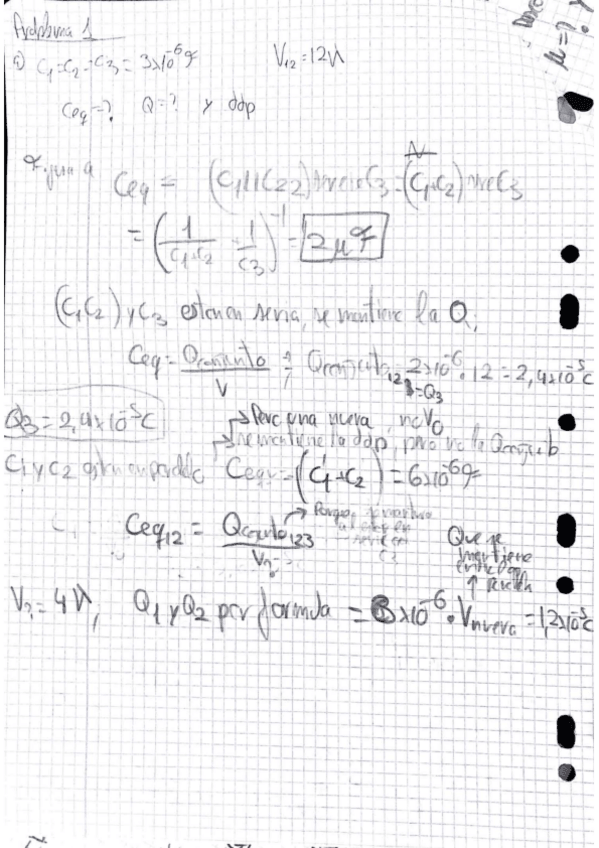 Problema 1
a) C₁=C₂=C₃= 3x10⁻⁶F V₁₂=12V
Ceq=? Q=? y ddp
Figura a Ceq = (C₁||C₂) serie C₃ = (C₁+C₂) serie C₃
= (1/(C₁+C₂) + 1/C₃)⁻¹ = 2μF
(C₁C₂) y C₃ estan en serie, se mantiene la Q,
Ceq = Qconjunto/V ; Qconjunto₁₂₃ 2x10⁻⁶ · 12 = 2,4x10⁻⁵C
=Q₃
Q₃=2,4x10⁻⁵C
→ Pero una nueva, no V₀
→ se mantiene la ddp, pero no la Qconjunto
C₁ y C₂ estan en paralelo Ceq = (C₁+C₂) = 6x10⁻⁶F
Ceq₁₂ = Qconjunto₁₂₃/V?
→ Porque se mantiene
C₃
Que se
mantiene
V?=4V, Q₁ y Q₂ por formula = 3x10⁻⁶ · Vnueva = 1,2x10⁻⁵C
μ=?